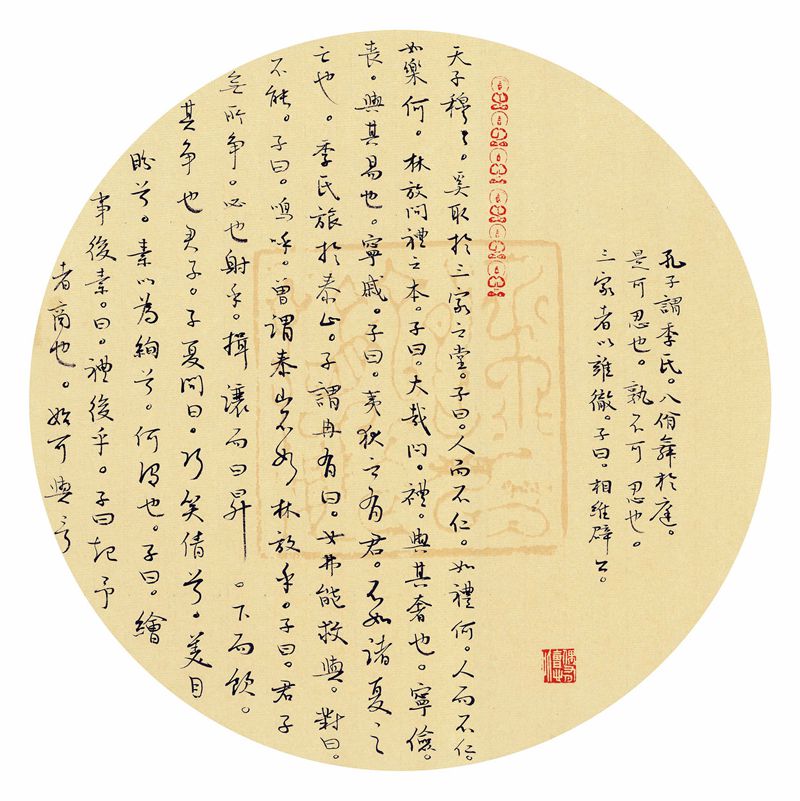 孔子謂季氏。八佾舞於庭。
是可忍也。孰不可忍也。
三家者以雍徹。子曰。相維辟公。
天子穆々。奚取於三家之堂。子曰。人而不仁。如禮何。人而不仁。
如樂何。林放問禮之本。子曰。大哉問。禮。與其奢也。寧儉。
喪。與其易也。寧戚。子曰。夷狄之有君。不如諸夏之
亡也。季氏旅於泰山。子謂冉有曰。女弗能救與。對曰。
不能。子曰。嗚呼。曾謂泰山不如林放乎。子曰。君子
無所争。必也射乎。揖讓而曰昇。下而飲。
其争也君子。子夏問曰。巧笑倩兮。美目
盼兮。素以為絢兮。何謂也。子曰。繪
事後素。曰。禮後乎。子曰起予
者商也。始可與言